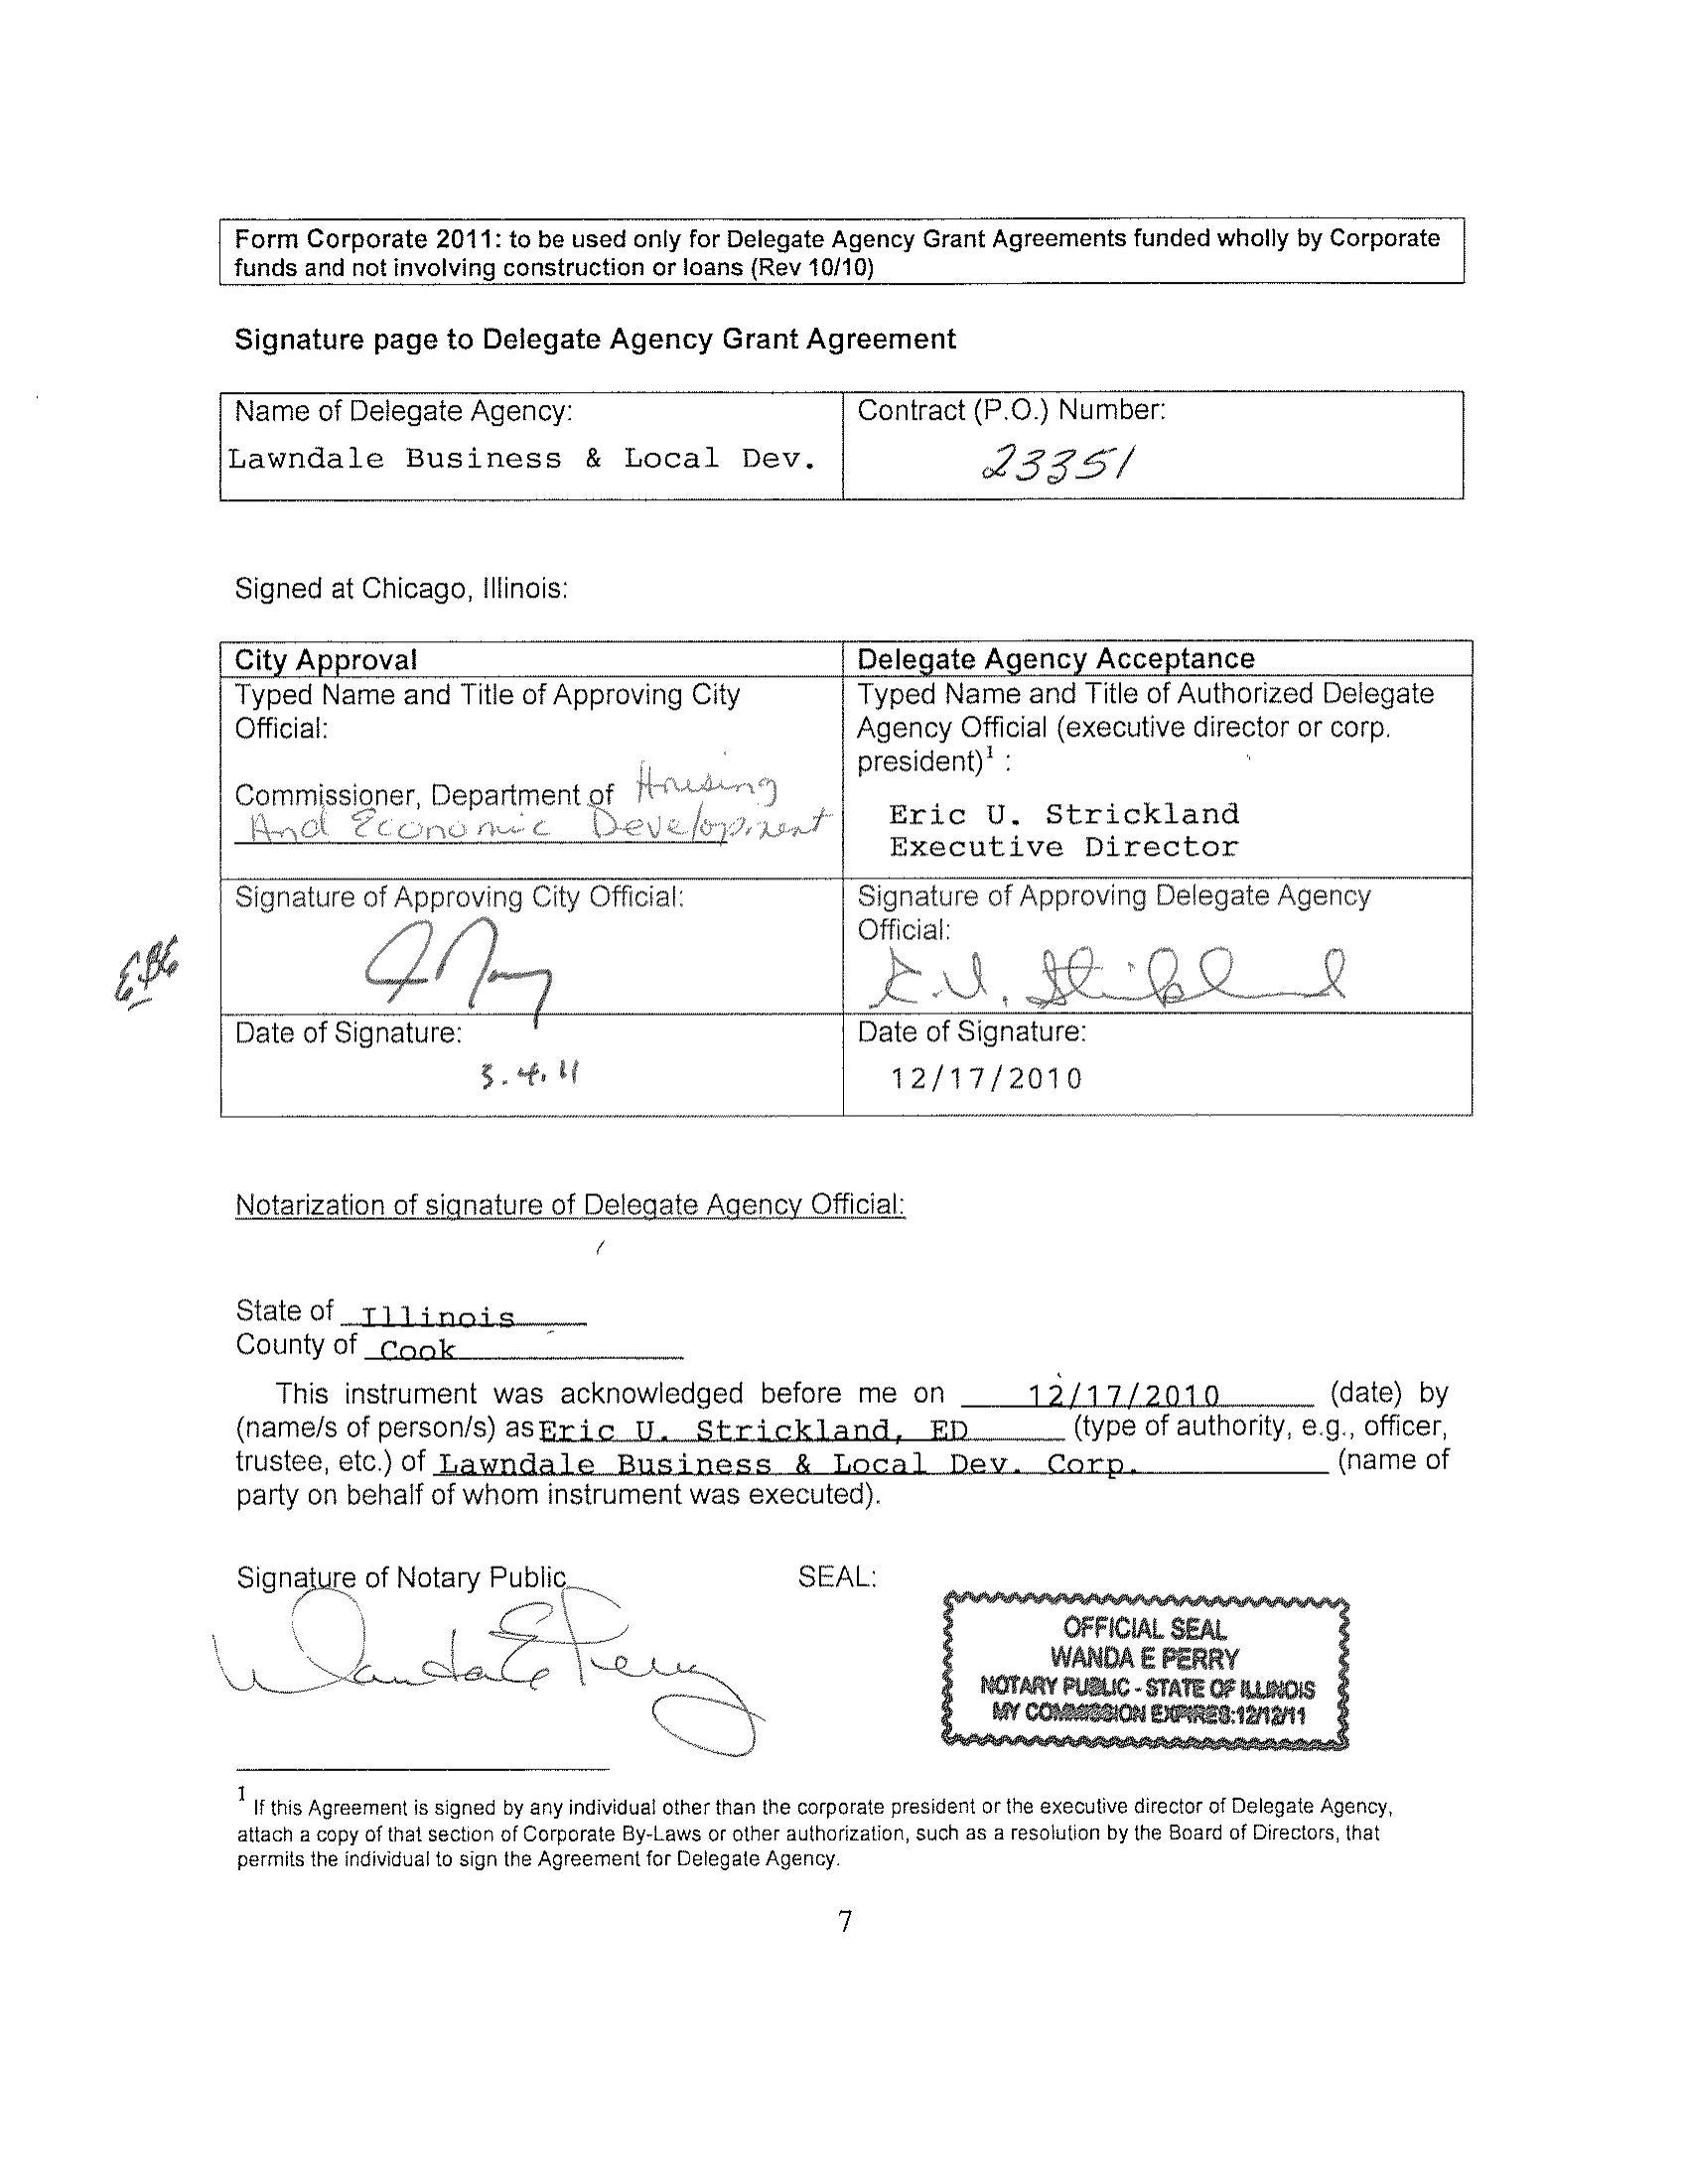 Form Corporate 2011: to be used only for Delegate Agency Grant Agreements funded wholly by Corporate
funds and not involving construction or loans (Rev 10/10)
Signature page to Delegate Agency Grant Agreement
Name of Delegate Agency:
Lawndale Business & Local Dev.
Contract (P.O.) Number:
23351
Signed at Chicago, Illinois:
City Approval
Typed Name and Title of Approving City
Official:
Commissioner, Department of Housing
And Economic Development
Delegate Agency Acceptance
Typed Name and Title of Authorized Delegate
Agency Official (executive director or corp.
president)1 :
Eric U. Strickland
Executive Director
Signature of Approving City Official:
Signature of Approving Delegate Agency
Official:
E.U. Strickland
Date of Signature:
3.4.11
Date of Signature:
12/17/2010
Notarization of signature of Delegate Agency Official:
State of Illinois
County of Cook
This instrument was acknowledged before me on 12/17/2010 (date) by
(name/s of person/s) as Eric U. Strickland, ED (type of authority, e.g., officer,
trustee, etc.) of Lawndale Business & Local Dev. Corp. (name of
party on behalf of whom instrument was executed).
Signature of Notary Public
Wanda E Perry
SEAL:
OFFICIAL SEAL
WANDA E PERRY
NOTARY PUBLIC - STATE OF ILLINOIS
MY COMMISSION EXPIRES:12/12/11
1 If this Agreement is signed by any individual other than the corporate president or the executive director of Delegate Agency,
attach a copy of that section of Corporate By-Laws or other authorization, such as a resolution by the Board of Directors, that
permits the individual to sign the Agreement for Delegate Agency.
7